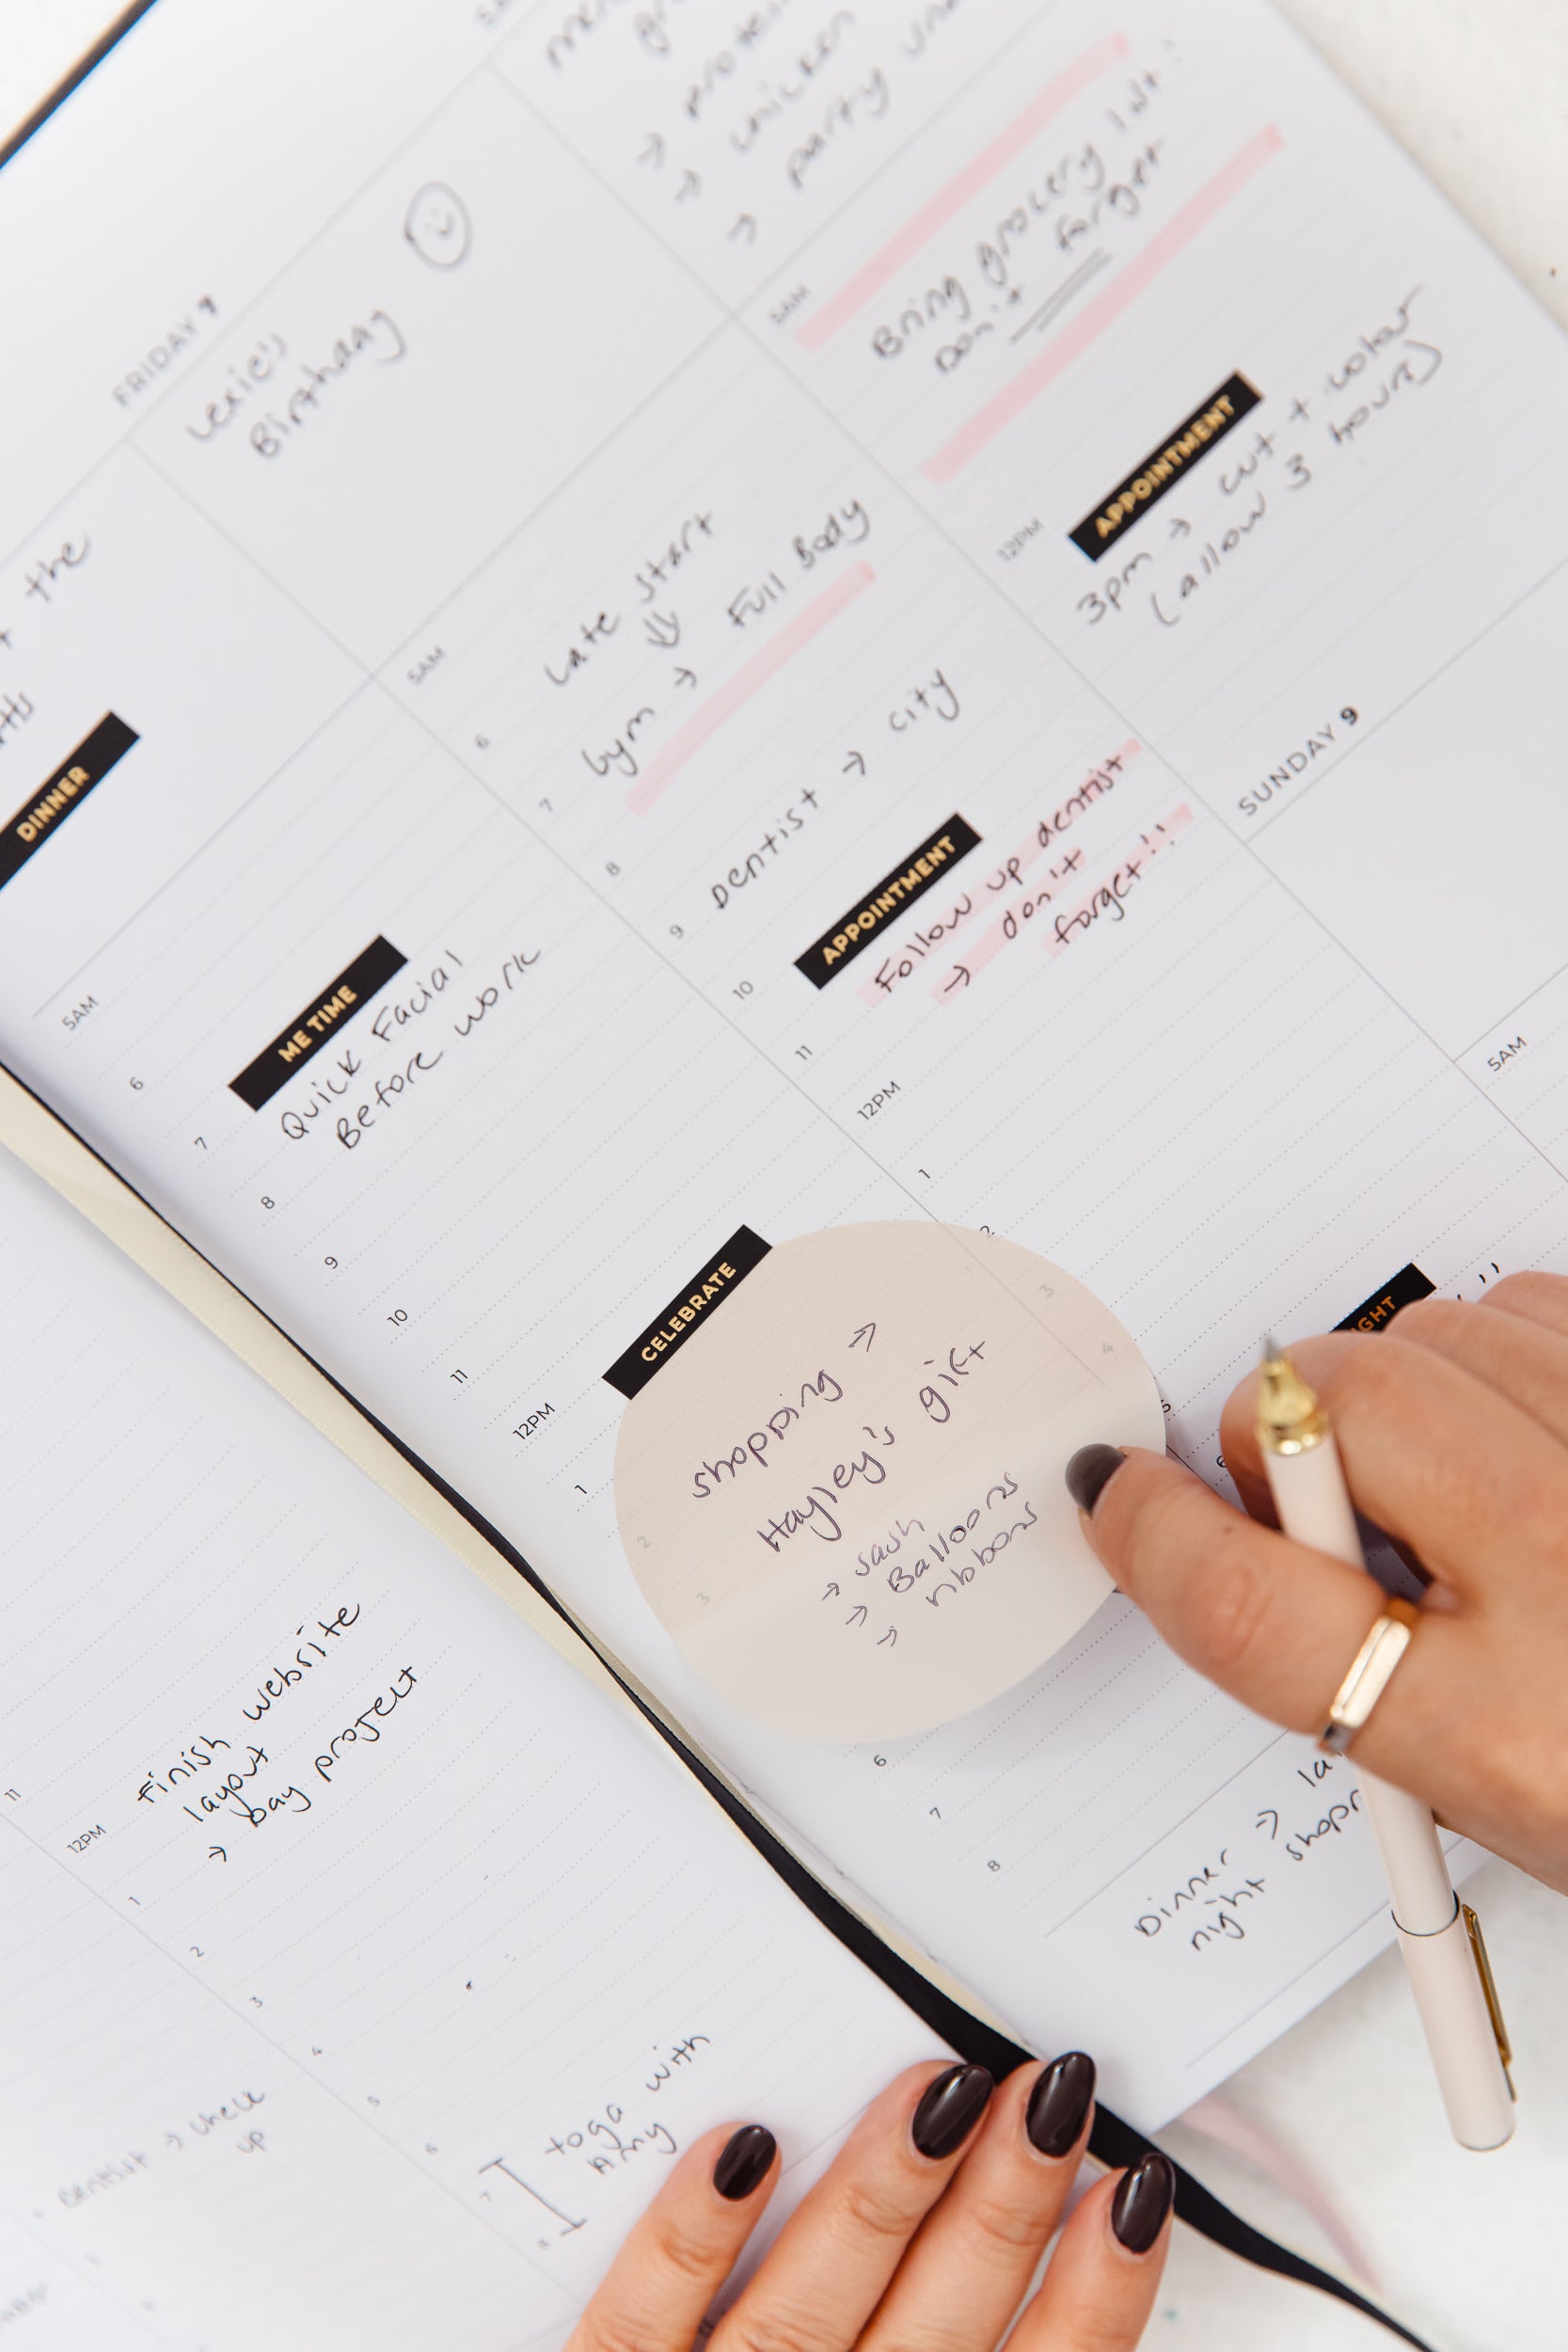 FRIDAY 7
Lexie's
Birthday
the
DINNER
5AM
6
7
8
9
10
11
12PM
1
2
3
6
7
8
ME TIME
Quick Facial
Before work
CELEBRATE
shopping →
Hayley's gift
→ sash
→ Balloons
→ ribbons
Dinner →
night
5AM
6
7
8
9
10
11
12PM
1
2
3
4
5
6
Late start
⇓
Gym → Full Body
Dentist → city
APPOINTMENT
Follow up dentist
→ don't
forget!!
→ chicken
→ party
5AM
Bring grocery list!
Don't forget
12PM
APPOINTMENT
3pm → cut + colour
(allow 3 hours)
SUNDAY 9
5AM
11
12PM
1
2
3
4
5
6
7
8
Finish website
layout
→ Day project
Yoga with
Amy
Dentist → check
up